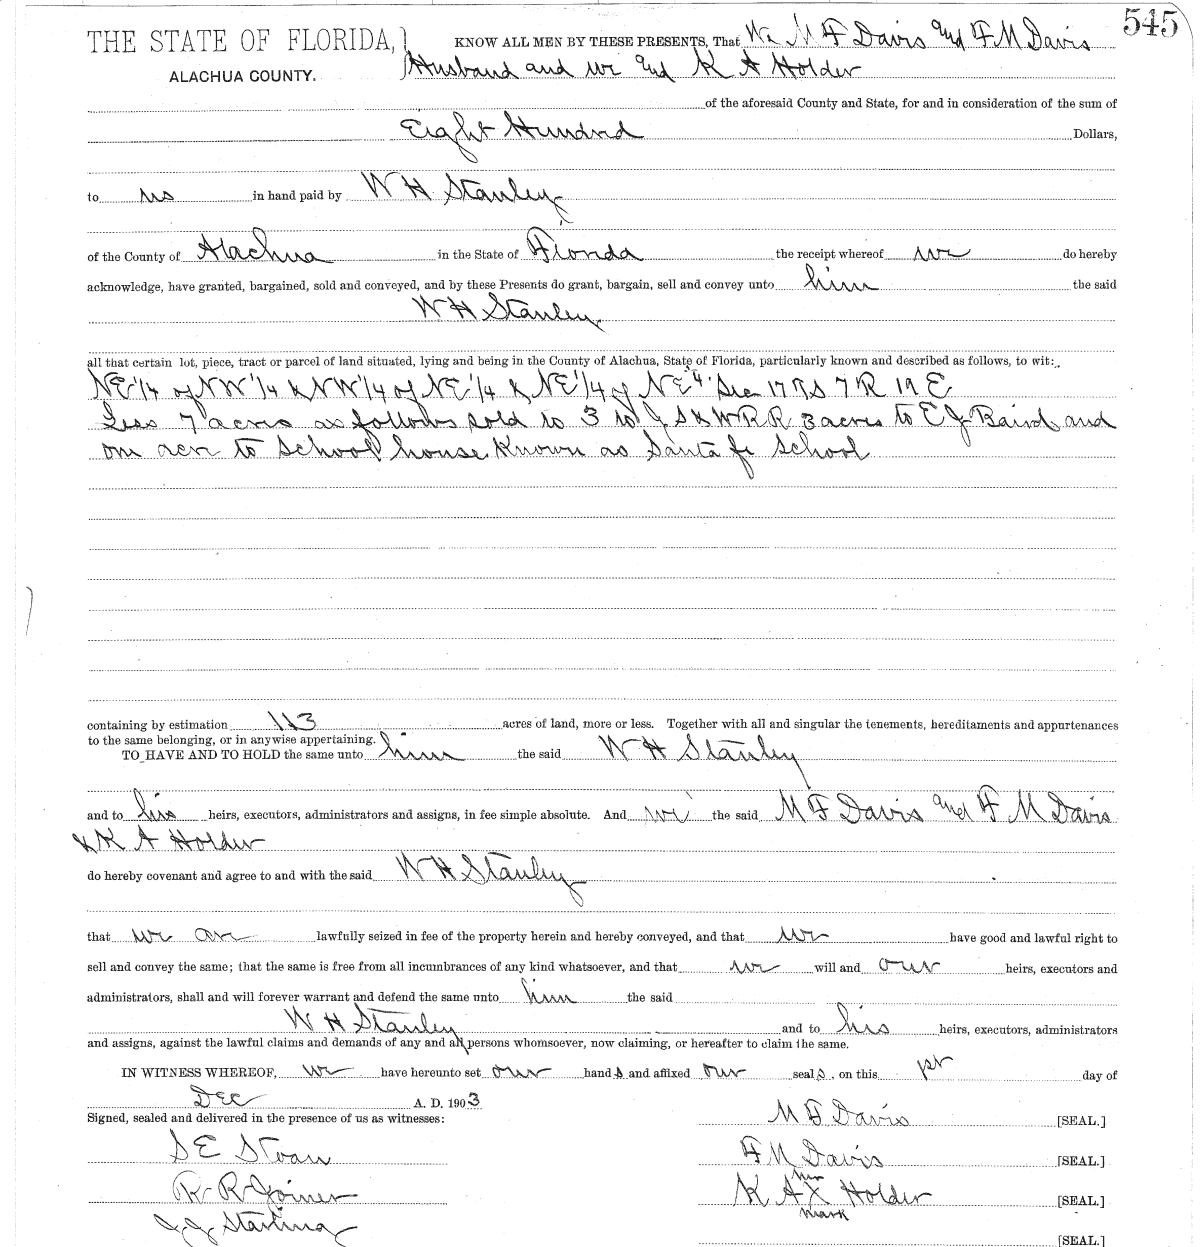 545
THE STATE OF FLORIDA,} KNOW ALL MEN BY THESE PRESENTS, That We M F Davis and F M Davis
ALACHUA COUNTY. Husband and wi and K A Holder
of the aforesaid County and State, for and in consideration of the sum of
Eight Hundred Dollars,
to us in hand paid by W H Stanley
of the County of Alachua in the State of Florida the receipt whereof we do hereby
acknowledge, have granted, bargained, sold and conveyed, and by these Presents do grant, bargain, sell and convey unto him the said
W H Stanley
all that certain lot, piece, tract or parcel of land situated, lying and being in the County of Alachua, State of Florida, particularly known and described as follows, to wit:
NE 1/4 of NW 1/4 & NW 1/4 of NE 1/4 & NE 1/4 of NE 1/4 Sec 17 7 R 19 E
Less 7 acres as follows sold to 3 to J S & W R R 3 acres to E J Baird and
one acre to School house Known as Santa fe School
containing by estimation 113 acres of land, more or less. Together with all and singular the tenements, hereditaments and appurtenances
to the same belonging, or in anywise appertaining.
TO HAVE AND TO HOLD the same unto him the said W H Stanley
and to his heirs, executors, administrators and assigns, in fee simple absolute. And we the said M F Davis and F M Davis
& K A Holder
do hereby covenant and agree to and with the said W H Stanley
that we are lawfully seized in fee of the property herein and hereby conveyed, and that we have good and lawful right to
sell and convey the same; that the same is free from all incumbrances of any kind whatsoever, and that we will and our heirs, executors and
administrators, shall and will forever warrant and defend the same unto him the said
W H Stanley and to his heirs, executors, administrators
and assigns, against the lawful claims and demands of any and all persons whomsoever, now claiming, or hereafter to claim the same.
IN WITNESS WHEREOF, we have hereunto set our hand s and affixed our seal s, on this 1st day of
Dec A. D. 1903
Signed, sealed and delivered in the presence of us as witnesses:
M F Davis [SEAL.]
S E Sloan
F M Davis [SEAL.]
R R Joiner
her
K A X Holder [SEAL.]
mark
J J Starling
[SEAL.]